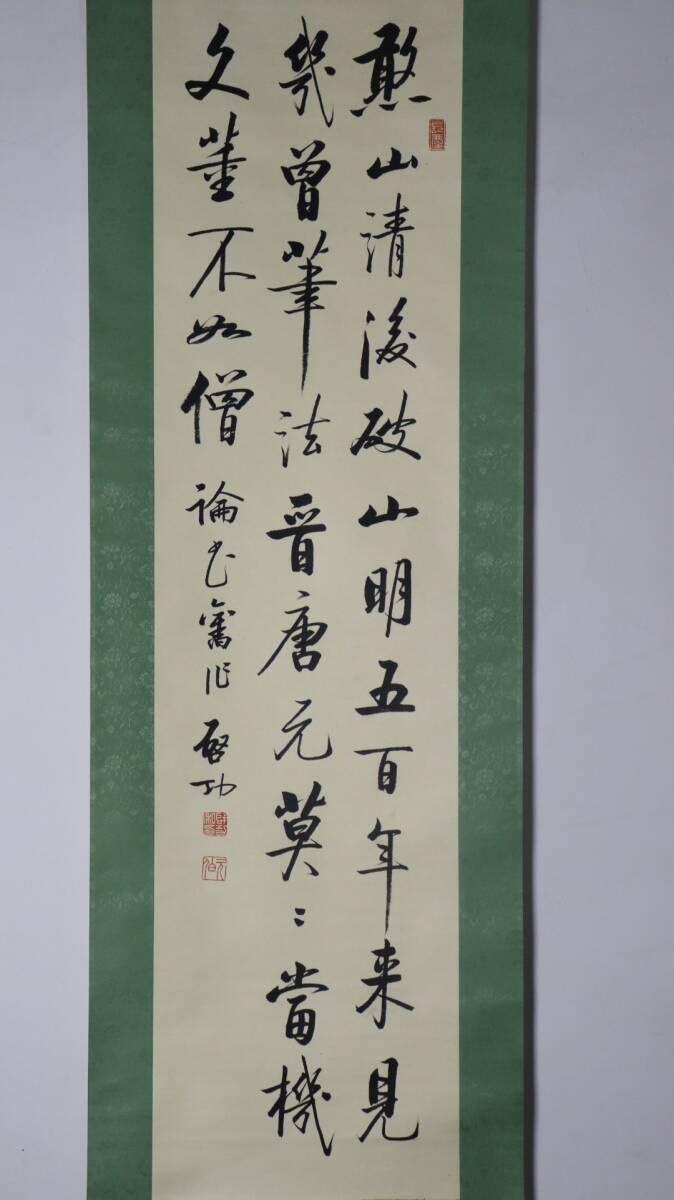 憨山清後破山明五百年来見
幾曾筆法晉唐元莫〻當機
文董不如僧 論书舊作 啓功